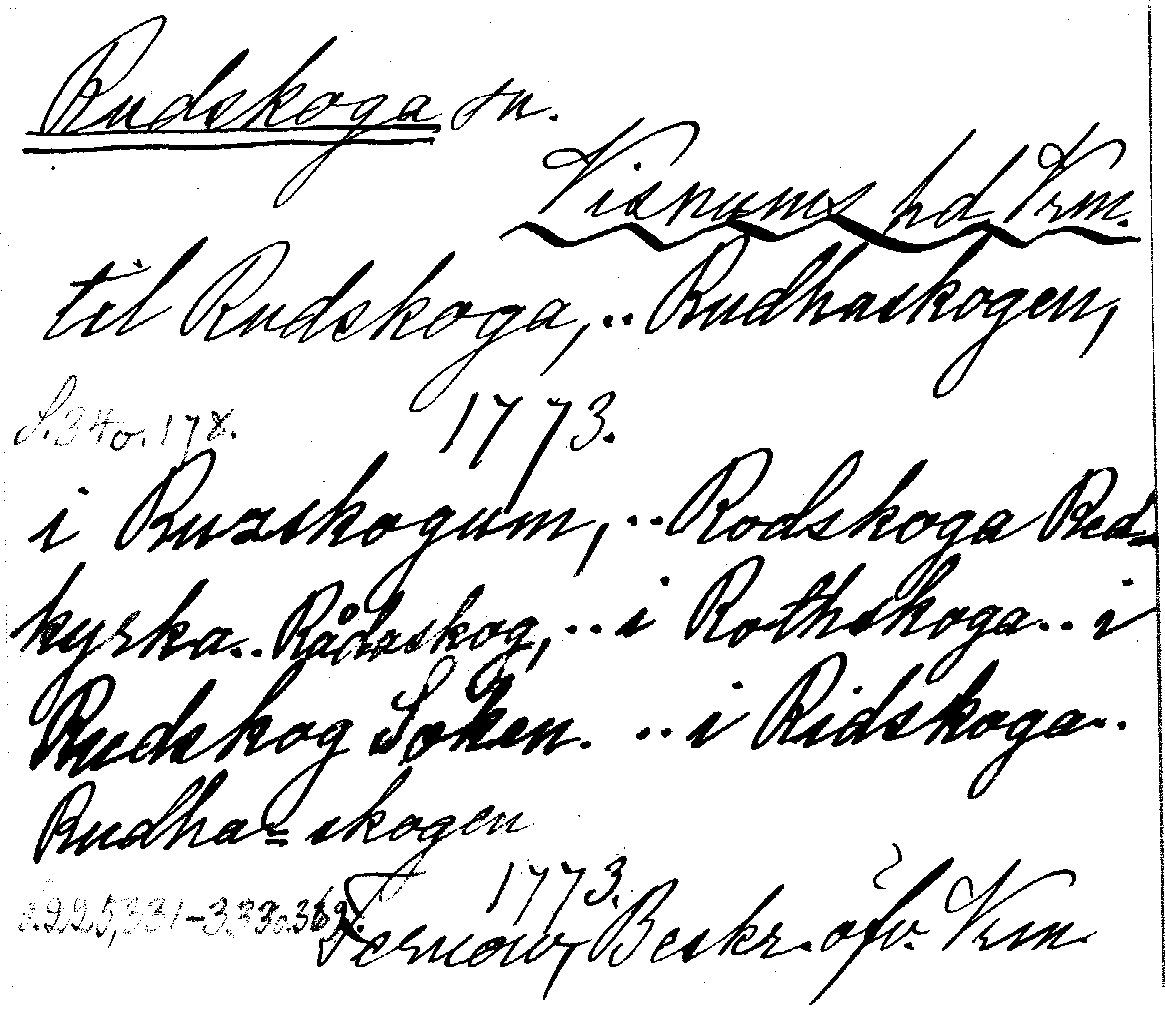 Rudskoga sn.
Visnums hd Vrm.
til Rudskoga, .. Rudhaskogen,
S. 34 o. 178. 1773.
i Ruzskogum, .. Rodskoga Red-
kyrka .. Rådaskog, .. i Rothskoga .. i
Rudskog Soken. .. i Ridskoga ..
Rudha= skogen
1773.
s. 225, 331-333 o. 369. Fernow, Beskr. öfv. Vrm.